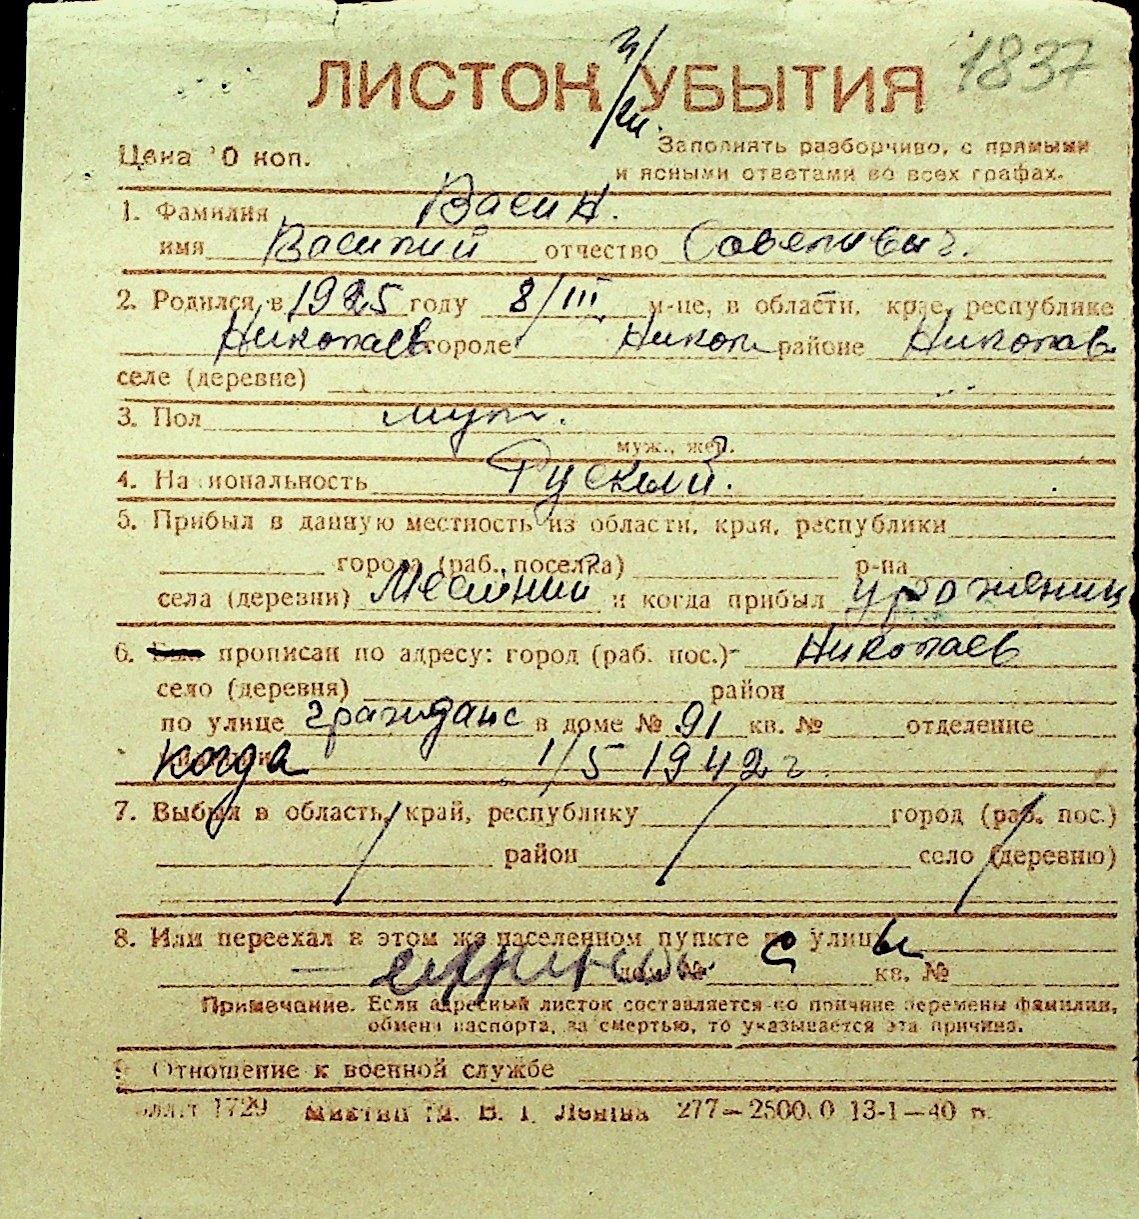 1837
ЛИСТОК УБЫТИЯ
Цена 10 коп.
Заполнять разборчиво, с прямыми
и ясными ответами во всех графах.
1. Фамилия Васин.
имя Василий отчество Савеливыч.
2. Родился в 1925 году 8/III м-це, в области, крае, республике
Николаев городе Никол районе Николаев
селе (деревне)
3. Пол муж.
муж., жен.
4. Национальность Руский.
5. Прибыл в данную местность из области, края, республики
города (раб., поселка) р-на
села (деревни) Местний и когда прибыл уроженец
6. Был прописан по адресу: город (раб. пос.) Николаев
село (деревня) район
по улице гражданс в доме № 91 кв. № отделение
когда 1/5 1942 г.
7. Выбыл в область, край, республику город (раб. пос.)
район село (деревню)
8. Или переехал в этом же населенном пункте с улицы
дом № кв. №
Примечание. Если адресный листок составляется по причине перемены фамилии,
обмена паспорта, за смертью, то указывается эта причина.
9. Отношение к военной службе
1729 277—2500.0 13-1—40 г.